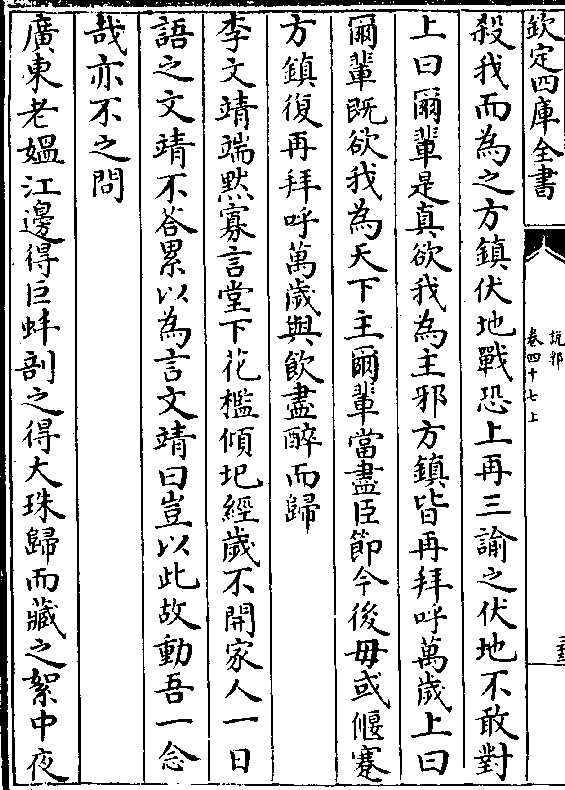 欽定四庫全書
說郛
卷四十七上
殺我而為之方鎮伏地戰恐上再三諭之伏地不敢對
上曰爾輩是真欲我為主邪方鎮皆再拜呼萬歲上曰
爾輩既欲我為天下主爾輩當盡臣節今後毋或偃蹇
方鎮復再拜呼萬歲與飲盡醉而歸
李文靖端黙寡言堂下花檻傾圮經歲不開家人一日
語之文靖不答累以為言文靖曰豈以此故動吾一念
哉亦不之問
廣東老媪江邊得巨蚌剖之得大珠歸而藏之絮中夜